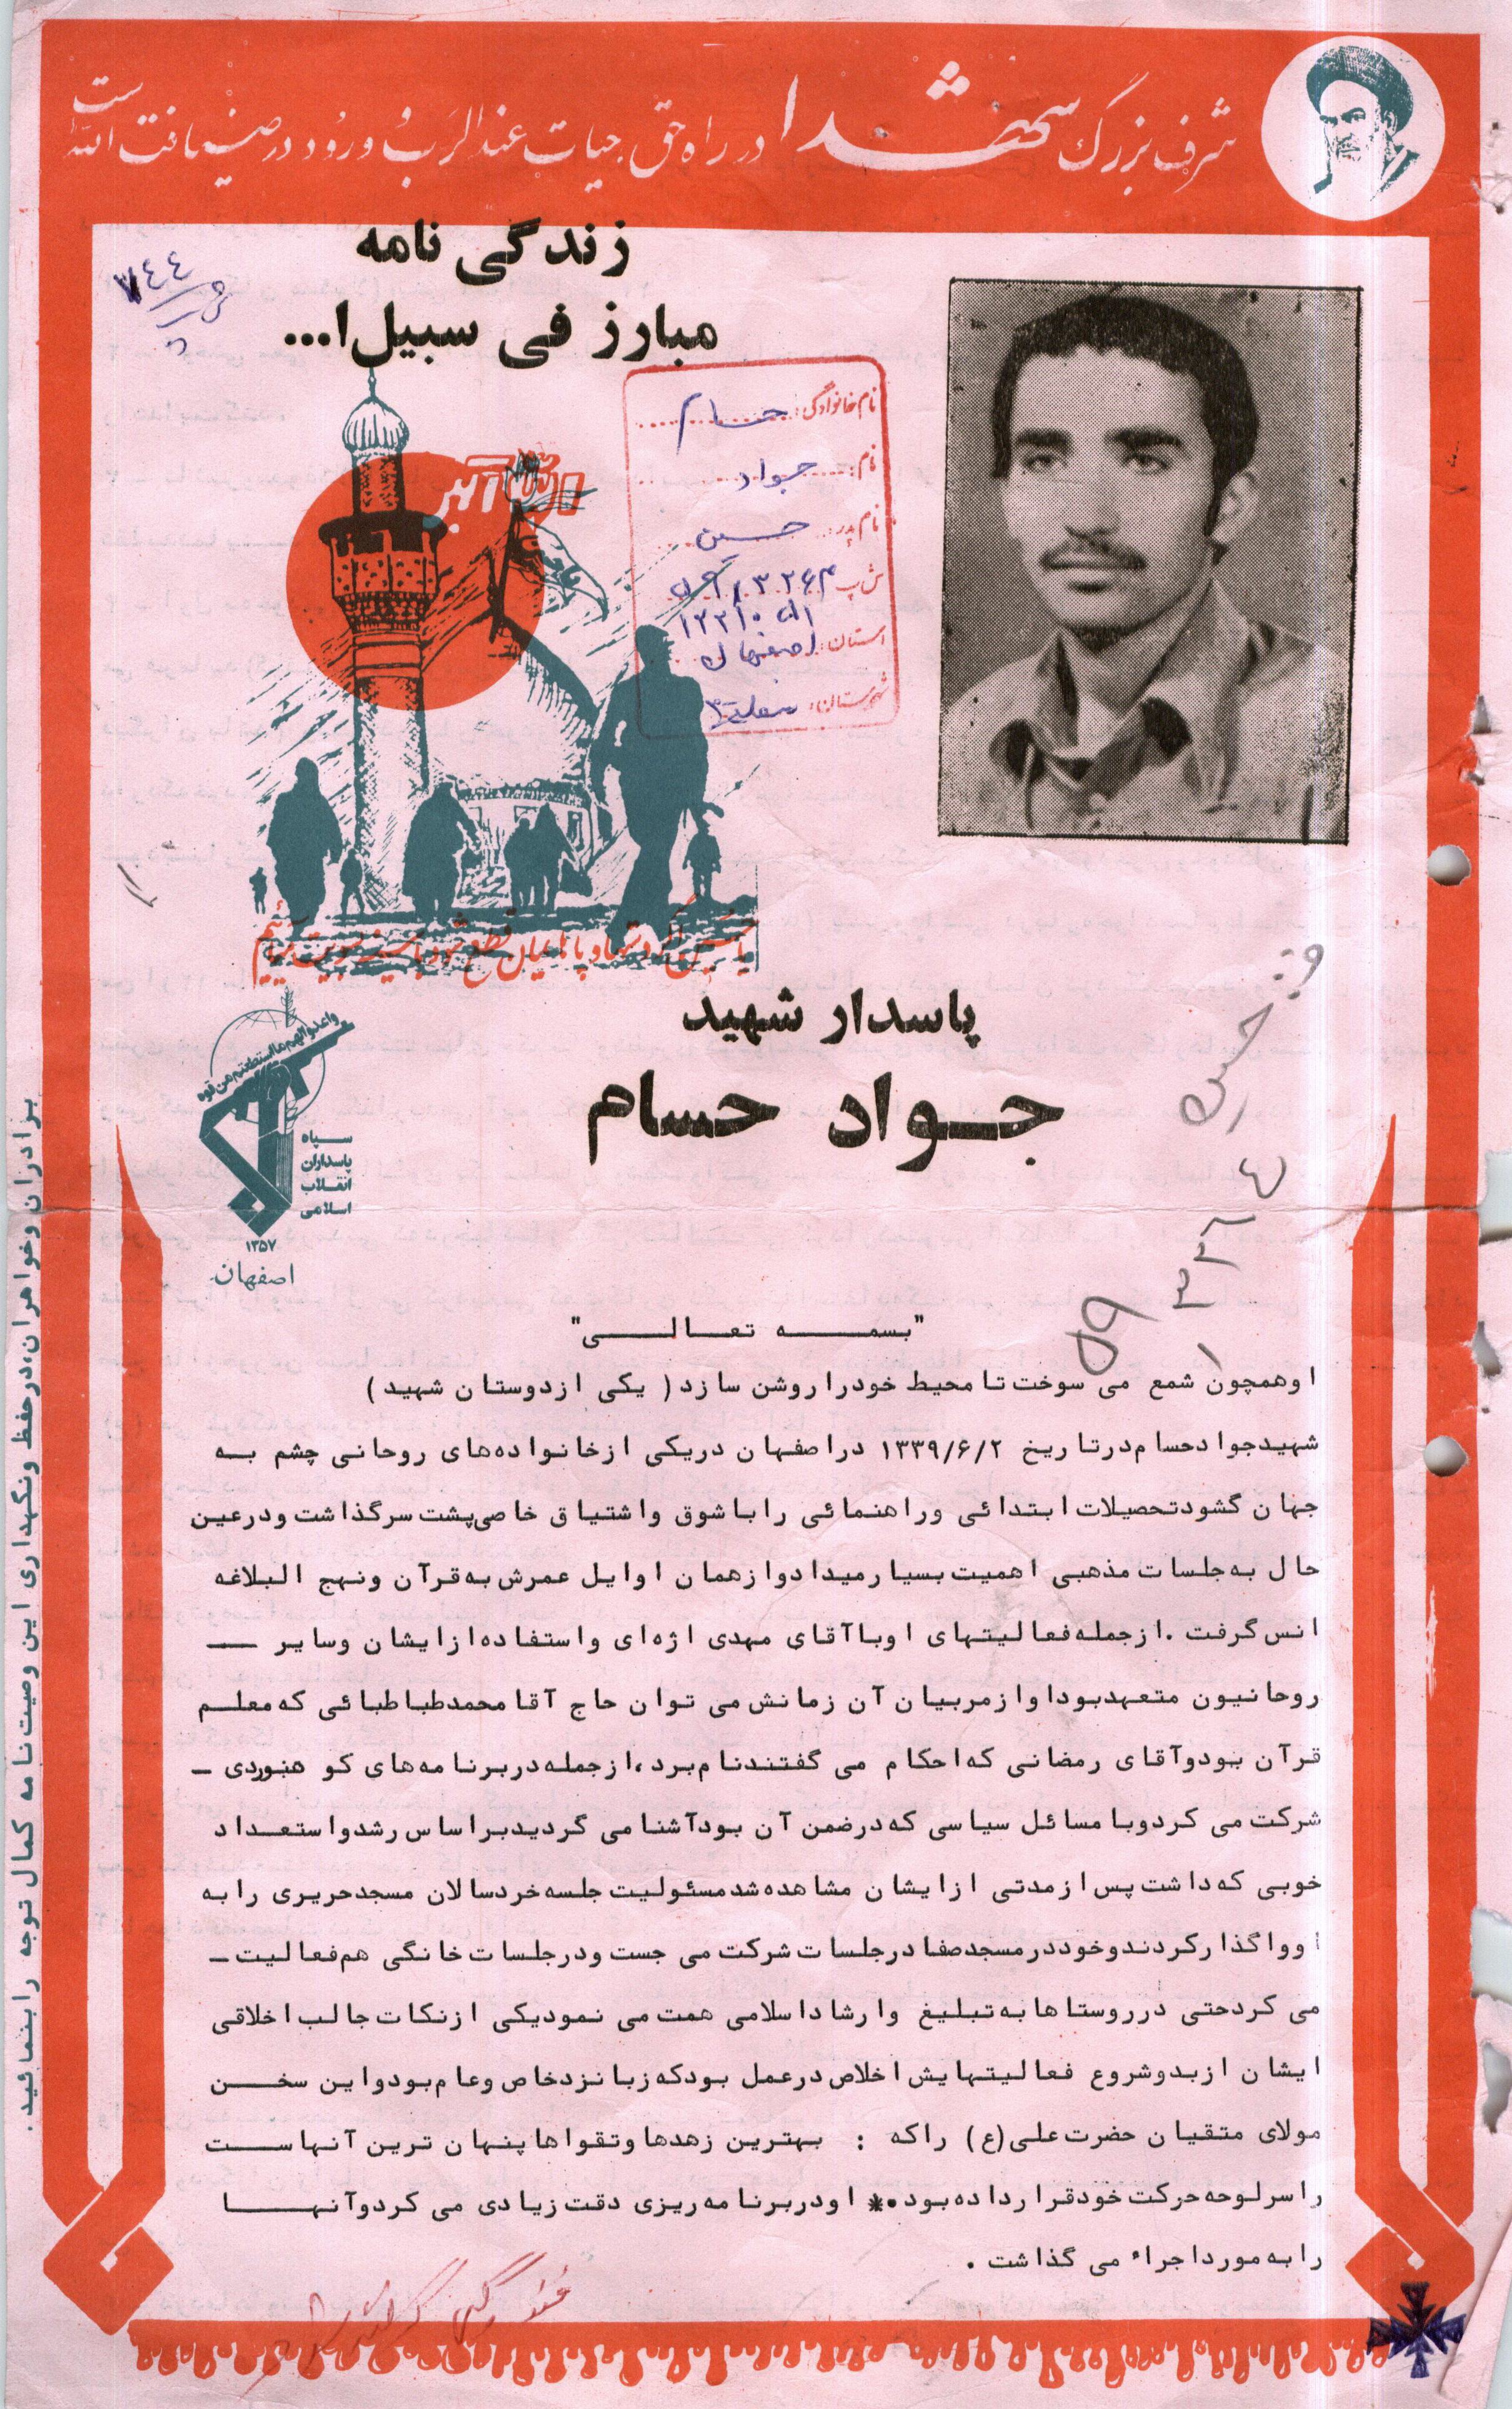 شرف بزرگ شهدا در راه حق، حیات عند الرب و ورود در ضیافت الله است
زندگی نامه
مبارز فی سبیل ا...
۷۴۴
نام خانوادگی: حسام
نام: جواد
نام پدر: حسین
ش پ
استان: اصفهان
شهرستان:
الله اکبر
واعدوا لهم ما استطعتم من قوه
سپاه
پاسداران
انقلاب
اسلامی
۱۳۵۷
اصفهان
پاسدار شهید
جواد حسام
۵۹
"بسمه تعالی"
اوهمچون شمع می سوخت تا محیط خودرا روشن سازد ( یکی ازدوستان شهید )
شهیدجوادحسام درتاریخ ۱۳۳۹/۶/۲ دراصفهان دریکی ازخانواده‌های روحانی چشم به
جهان گشودتحصیلات ابتدائی وراهنمائی را باشوق واشتیاق خاصی پشت سرگذاشت ودرعین
حال به جلسات مذهبی اهمیت بسیارمیدادوازهمان اوایل عمرش به قرآن ونهج البلاغه
انس گرفت .ازجمله فعالیتهای اوباآقای مهدی اژه‌ای واستفاده ازایشان وسایر ـ
روحانیون متعهدبوداوازمربیان آن زمانش می توان حاج آقامحمدطباطبائی که معلم
قرآن بودوآقای رمضانی که احکام می گفتندنام برد،ازجمله دربرنامه‌های کو هنوردی ـ
شرکت می کردوبا مسائل سیاسی که درضمن آن بودآشنا می گردیدبراساس رشدواستعداد
خوبی که داشت پس ازمدتی ازایشان مشاهده شدمسئولیت جلسه خردسالان مسجدحریری را به
اوواگذارکردندوخوددرمسجدصفادرجلسات شرکت می جست ودرجلسات خانگی هم فعالیت ـ
می کردحتی درروستاها به تبلیغ وارشاداسلامی همت می نمودیکی ازنکات جالب اخلاقی
ایشان ازبدوشروع فعالیتهایش اخلاص درعمل بودکه زبانزدخاص وعام بودواین سخن
مولای متقیان حضرت علی(ع) راکه : بهترین زهدها وتقواها پنهان ترین آنهاست
راسرلوحه حرکت خودقرارداده بود.* اودربرنامه ریزی دقت زیادی می کردوآنها
رابه مورداجراء می گذاشت .
برادران وخواهران،درحفظ ونگهداری این وصیت نامه کمال توجه رابنمائید.